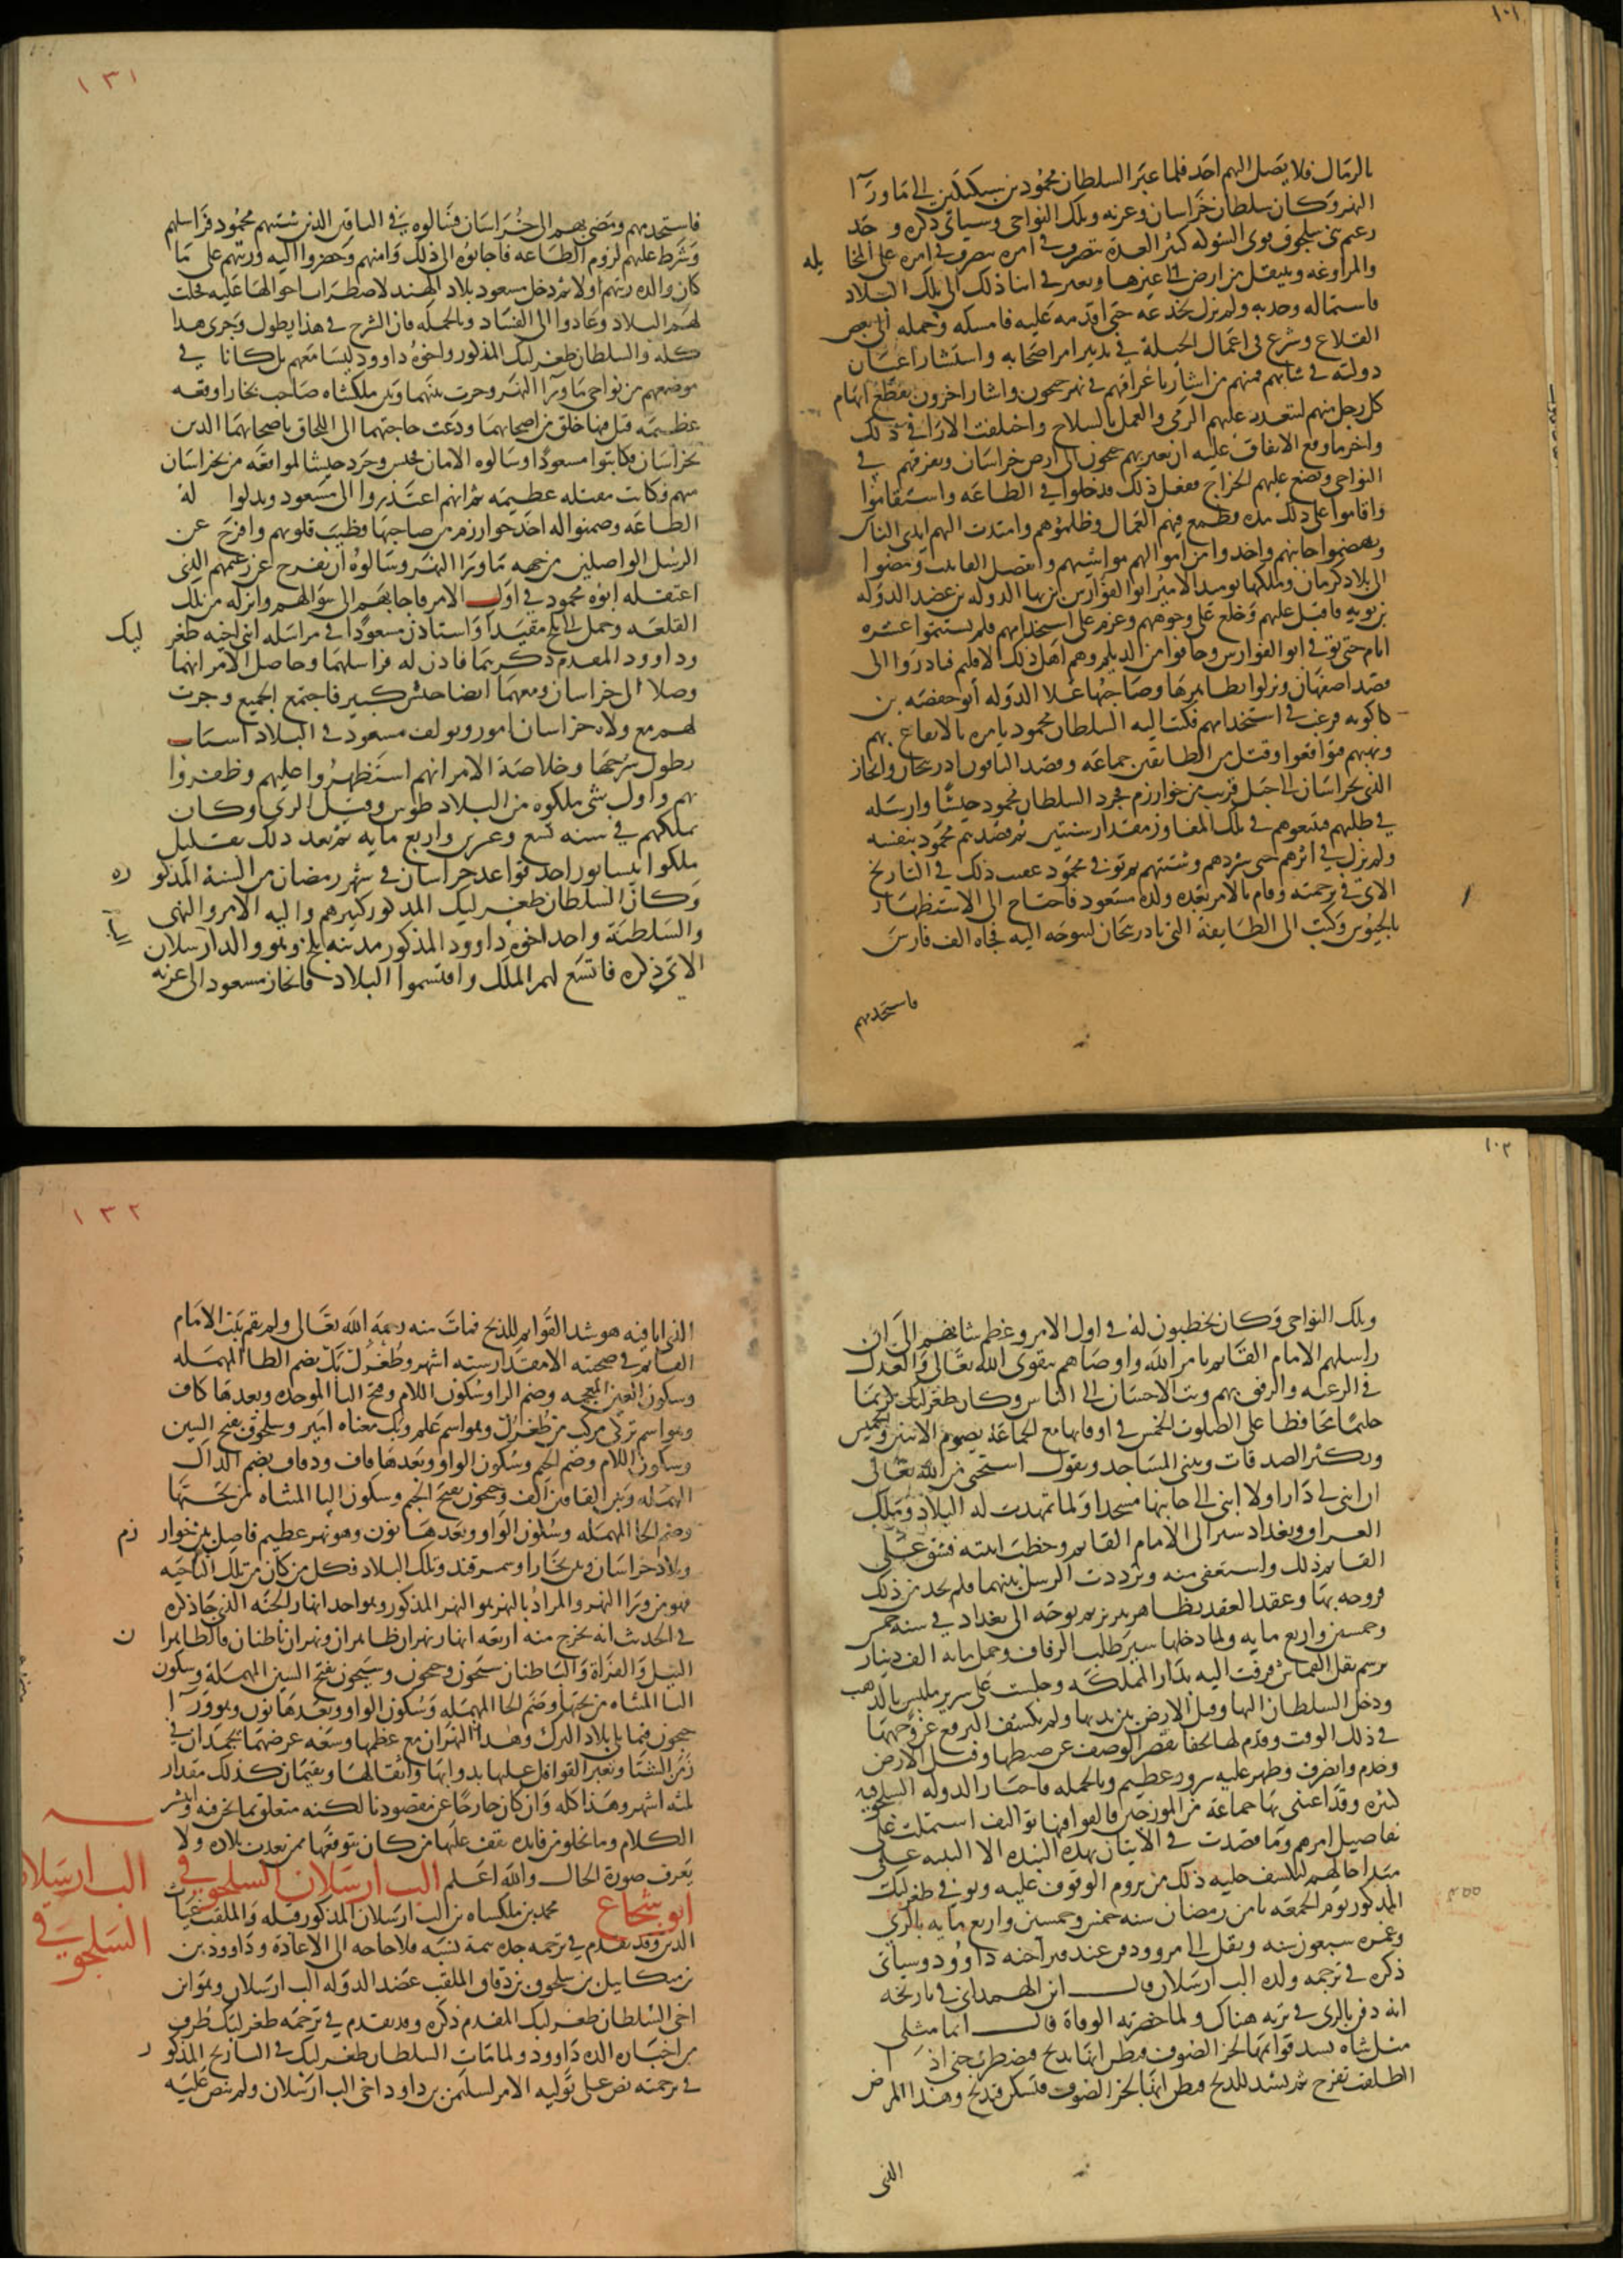 ١٠١
بالرمال فلا يصل اليهم احد فلما عبر السلطان محمود بن سبكتكين الى ما ورآ
النهر وكان سلطان خراسان وغزنه وتلك النواحي وسياتي ذكره وجد
زعيم بني سلجوق قوي الشوكه كثير العدة يتصرف في امره على المخا يله
والمراوغه وينتقل من ارض الى غيرها ويغير في اثنا ذلك الى تلك البلاد
فاستماله وجذبه ولم يزل يخدعه حتى اقدمه عليه فامسكه وحمله الى بعض
القلاع وشرع في اعمال الحيلة في تدبير امر اصحابه واستشار اعيان
دولته في شانهم فمنهم من اشار باغراقهم في نهر جيحون واشار اخرون بقطع ابهام
كل رجل منهم ليتعذر عليهم الرمي والعمل بالسلاح واختلفت الارا في ذلك
واخر ما وقع الاتفاق عليه ان يعبر بهم جيحون الى ارض خراسان ويفرقهم في
النواحي ويضع عليهم الخراج ففعل ذلك فدخلوا في الطاعه واستقاموا
واقاموا على ذلك مده فطمع فيهم العمال وظلموهم وامتدت اليهم ايدي الناس
وتهضموا جانبهم واخذوا من اموالهم مواشيهم وانفصل الفا بيت ومضوا
الى بلاد كرمان وملكها يوميذ الامير ابو الفوارس بن بها الدوله بن عضد الدوله
بن بويه فاقبل عليهم وخلع على وجوههم وعزم على استخدامهم فلم يستتموا عشره
ايام حتى توفي ابو الفوارس وخافوا من الديلم وهم اهل ذلك الاقليم فبادروا الى
قصد اصفهان ونزلوا بظاهرها وصاحبها علا الدوله ابو جعفر بن
كاكويه فرغب في استخدامهم فكتب اليه السلطان محمود يامره بالايقاع بهم
ونهبهم فتواقعوا وقتل من الطايفتين جماعه وقصد الباقون اذربيجان وانحاز
الذي بخراسان الى جبل قريب من خوارزم فجرد السلطان محمود جيشا وارسله
في طلبهم فتبعوهم في تلك المفاوز مقدار سنتين ثم قصدهم محمود بنفسه
ولم يزل في اثرهم حتى شردهم وشتتهم ثم توفي محمود عقيب ذلك في التاريخ
الاتي في ترجمته وقام بالامر بعده ولده مسعود فاحتاج الى الاستظهار
بالجيوش فكتب الى الطايفة التي باذربيجان لتتوجه اليه فجاه الف فارس
فاستخدمهم
١٣١
فاستخدمهم ومضى بهم الى خراسان فسالوه في الباقين الذين شتتهم محمود فراسلهم
وشرط عليهم لزوم الطاعه فاجابوه الى ذلك وامنهم وحضروا اليه ورتبهم على ما
كان والده رتبهم اولا ثم دخل مسعود بلاد الهند لاضطراب احوالها عليه فخلت
لهم البلاد وعادوا الى الفساد وبالجمله فان الشرح في هذا يطول وجرى هذا
كله والسلطان طغرلبك المذكور واخوه داوود ليسا معهم بل كانا في
موضعهم من نواحي ما ورآ النهر وجرت بينهما وبين ملكشاه صاحب بخارا وقعه
عظيمه قتل فيها خلق من اصحابهما ودعت حاجتهما الى اللحاق باصحابهما الذين
بخراسان فكاتبوا مسعودا وسالوه الامان فحبس وجرد جيشا لمواقعه من بخراسان
منهم فكانت مقتله عظيمه ثم انهم اعتذروا الى مسعود وبذلوا له
الطاعه وضمنوا له اخذ خوارزم من صاحبها فطيب قلوبهم وافرج عن
الرسل الواصلين من جهه ما ورا النهر وسالوه ان يفرج عن زعيمهم الذي
اعتقله ابوه محمود في اول الامر فاجابهم الى سوالهم وانزله من تلك
القلعه وحمل الى بلخ مقيدا واستاذن مسعودا في مراسله ابني اخيه طغر لبك
وداوود المقدم ذكرهما فاذن له فراسلهما وحاصل الامر انهما
وصلا الى خراسان ومعهما ايضا جيش كبير فاجتمع الجميع وجرت
لهم مع ولاه خراسان امور ونواب مسعود في البلاد اسباب
يطول شرحها وخلاصة الامر انهم استظهروا عليهم وظفروا
بهم واول شي ملكوه من البلاد طوس وقيل الري وكان
تملكهم في سنه تسع وعشرين واربع مايه ثم بعد ذلك بقليل
ملكوا نيسابور احد قواعد خراسان في شهر رمضان من السنة المذكو ره
وكان السلطان طغرلبك المذكور كبيرهم واليه الامر والنهي
والسلطنة واخذ اخوه داوود المذكور مدينه بلخ وهو والد ارسلان
الاتي ذكره فاتسع لهم الملك واقتسموا البلاد فانحاز مسعود الى غزنه
١٠٢
وتلك النواحي وكان يخطبون له في اول الامر وعظم شانهم الى ان
راسلهم الامام القايم بامر الله واوصاهم بتقوى الله تعالى والعدل
في الرعيه والرفق بهم وبث الاحسان الى الناس وكان طغرلبك كريما
حليما محافظا على الصلوت الخمس في اوقاتها مع الجماعه يصوم الاثنين والخميس
ويكثر الصدقات ويبني المساجد ويقول استحيي من الله تعالى
ان ابني لي دارا ولا ابني الى جانبها مسجدا ولما تمهدت له البلاد وملك
العراق وبغداد سير الى الامام القايم وخطب ابنته فشق على
القايم ذلك واستعفى منه وترددت الرسل بينهما فلم يجد من ذلك
فزوجه بها وعقد العقد بظاهر تبريز ثم توجه الى بغداد في سنه خمس
وخمسين واربع مايه ولما دخلها سير طلب الزفاف وحمل مايه الف دينار
برسم نقل القماش فزفت اليه بدار المملكه وجلست على سرير ملبس بالذهب
ودخل السلطان اليها وقبل الارض بين يديها ولم يكشف البرقع عن وجهها
في ذلك الوقت وقدم لها تحفا يقصر الوصف عن ضبطها وقبل الارض
وخدم وانصرف وظهر عليه سرور عظيم وبالجمله فاخبار الدوله السلجوقيه
كثيره وقد اعتنى بها جماعة من المورخين فالفوا فيها تواليف اشتملت على
تفاصيل امرهم وما قصدت في الاتيان بهذه النبذه الا التنبيه على
مبدا حالهم ليكشف جليه ذلك من يروم الوقوف عليه وتوفي طغرلبك
المذكور يوم الجمعه ثامن رمضان سنه خمس وخمسين واربع مايه بالري
وعمره سبعون سنه ونقل الى مرو ودفن عند قبر اخيه داوود وسياتي
ذكره في ترجمه ولده الب ارسلان وقال ابن الهمداني في تاريخه
انه دفن بالري في تربه هناك ولما حضرته الوفاة قال انما مثلي
مثل شاه تشد قوايمها لجز الصوف فتظن انها تذبح فتضطرب حتى اذا
اطلقت تفرح ثم تشد للذبح فتظن انها لجز الصوف فتسكن فتذبح وهذا المرض
الذي
١٣٢
الذي انا فيه هو شد القوايم للذبح فمات منه رحمه الله تعالى ولم تقم بنت الامام
القايم في صحبته الا مقدار سته اشهر وطغرل بك بضم الطا المهمله
وسكون الغين المعجمه وضم الرا وسكون اللام وفتح البا الموحده وبعدها كاف
وهو اسم تركي مركب من طغرل وهو اسم علم وبك معناه امير وسلجوق بفتح السين
وسكون اللام وضم الجيم وسكون الواو وبعدها قاف ودقاق بضم الدال
المهمله وبين القافين الف وجيحون بفتح الجيم وسكون اليا المثناه من تحتها
وضم الحا المهمله وسكون الواو وبعدها نون وهو نهر عظيم فاصل بين خوار زم
وبلاد خراسان وبين بخارا وسمرقند وتلك البلاد فكل من كان من تلك الناحيه
فهو من ورا النهر والمراد بالنهر هو النهر المذكور وهو احد انهار الجنه الذي جا ذكره
في الحديث انه يخرج منه اربعه انهار نهران ظاهران ونهران باطنان فالظاهرا ن
النيل والفراة والباطنان سيحون وجيحون وسيحون بفتح السين المهملة وسكون
اليا المثناه من تحتها وضم الحا المهمله وسكون الواو وبعدها نون وهو ورآ
جيحون فيما يلي بلاد الترك وهذا النهران مع عظمهما وسعه عرضهما يجمدان في
زمن الشتا وتعبر القوافل عليها بدوابها واثقالها ويقيمان كذلك مقدار
ثلثه اشهر وهذا كله وان كان خارجا عن مقصودنا لكنه متعلق بما نحن فيه وانتشر
الكلام وما تخلو من فايده يقف عليها من كان يتوقها ممن بعدت بلاده ولا
يعرف صورة الحال والله اعلم الب ارسلان السلجوقي
الب ارسلان
السلجوقي
ابو شجاع محمد بن ملكشاه بن الب ارسلان المذكور قبله والملقب غياث
الدين وقد تقدم في ترجمه جده تتمة نسبه فلا حاجه الى الاعادة وداوود بن
بن ميكاييل بن سلجوق بن دقاق الملقب عضد الدوله الب ارسلان وهو ابن
اخي السلطان طغرلبك المقدم ذكره وقد تقدم في ترجمه طغرلبك طرف
من اخبار والده داوود ولما مات السلطان طغرلبك في التاريخ المذكو ر
في ترجمته نص على توليه الامر لسليمن بن داود اخي الب ارسلان ولم ينص عليه